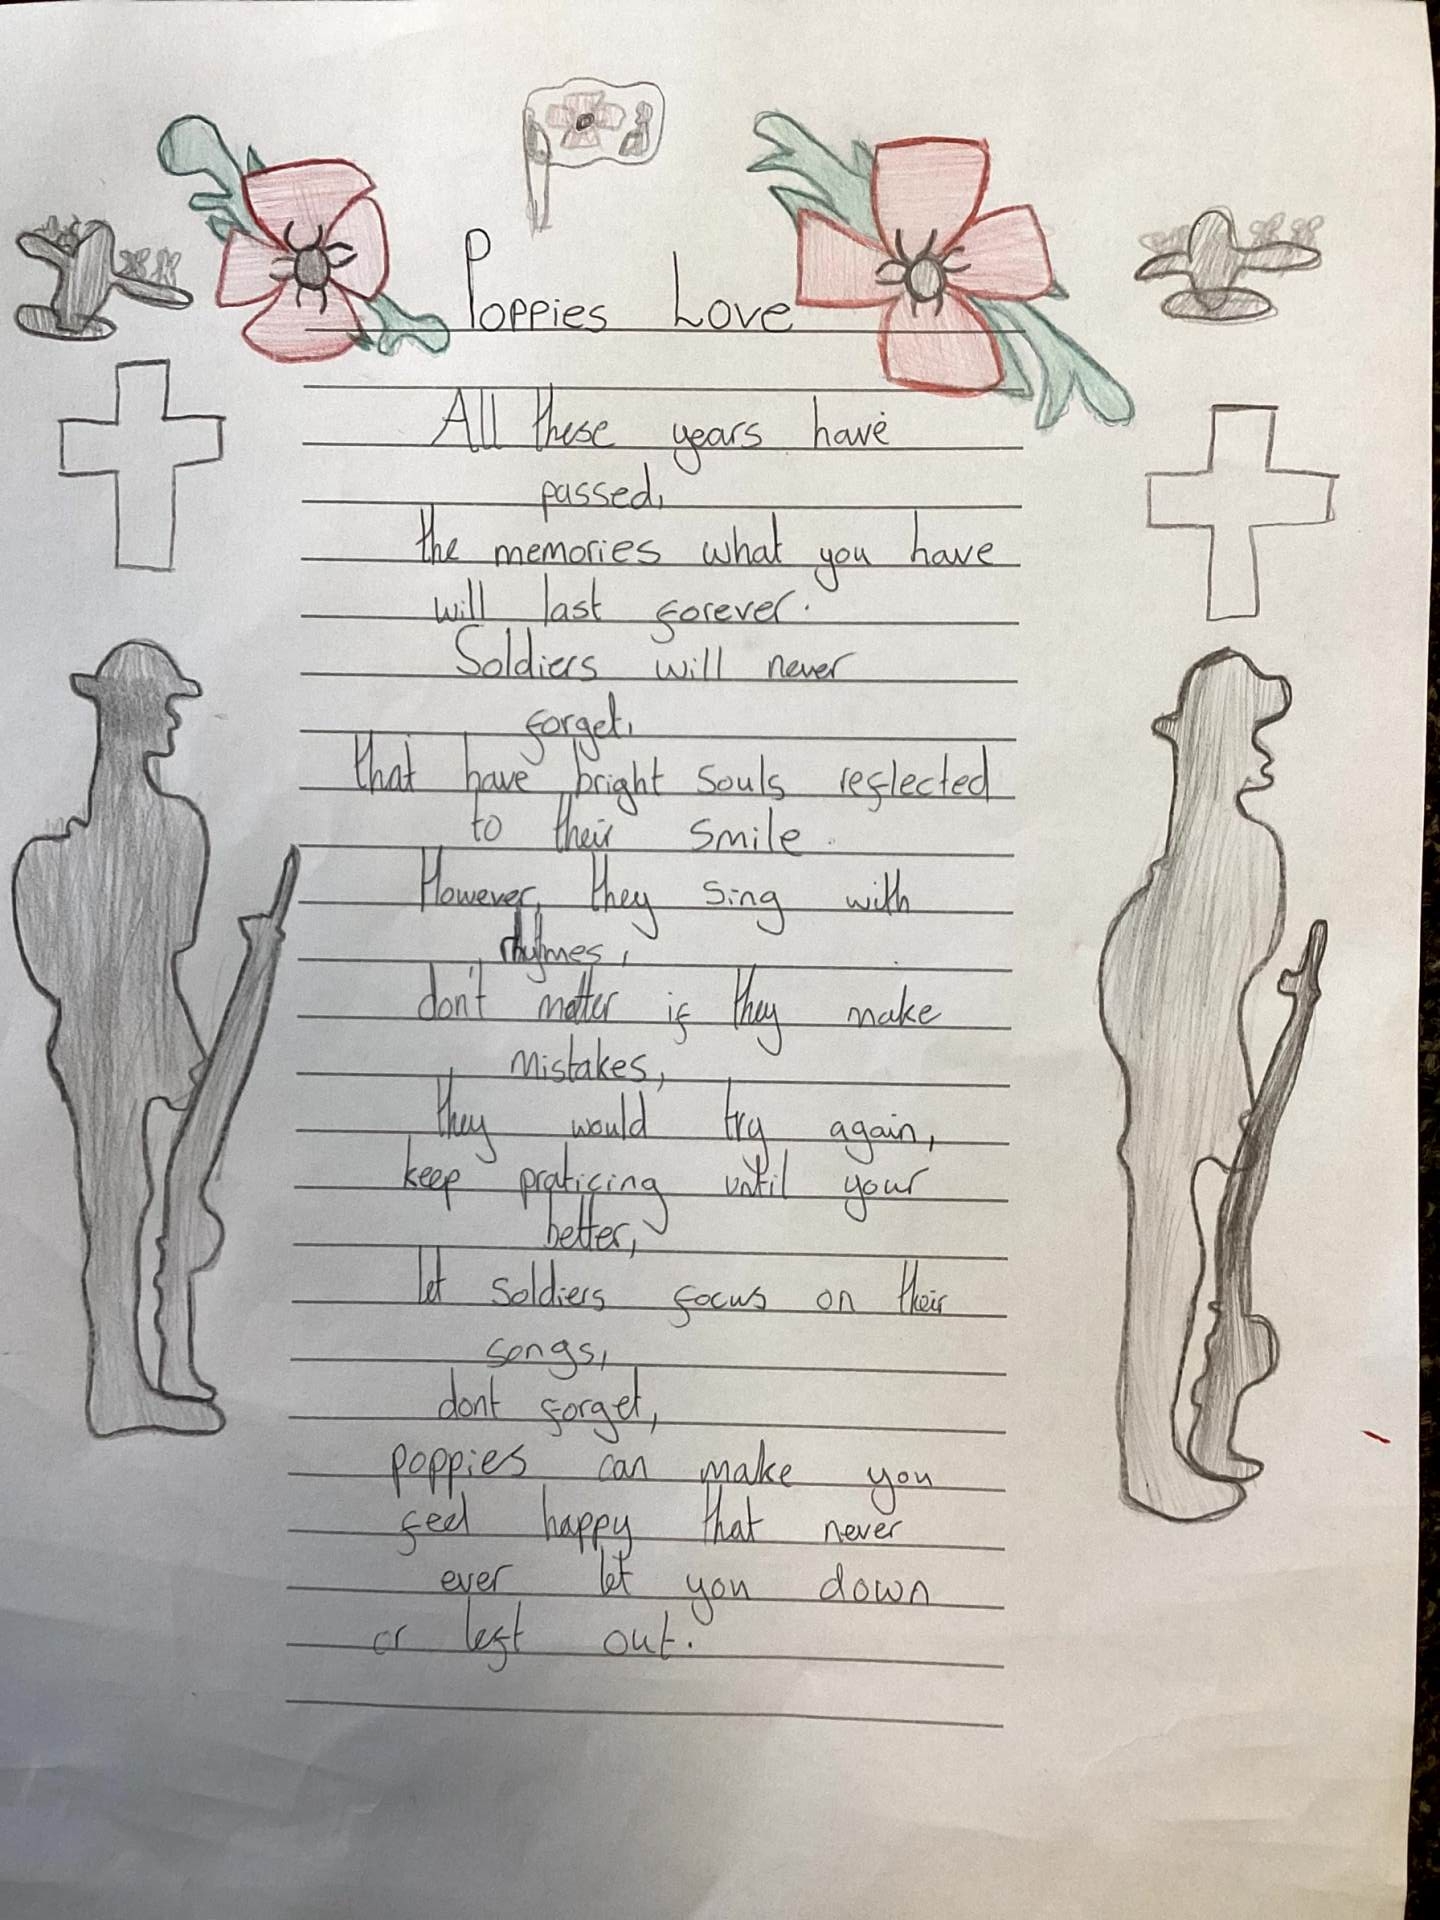 Poppies Love
All these years have
passed,
the memories what you have
will last forever.
Soldiers will never
forget,
that have bright souls reflected
to their smile.
However, they sing with
rhymes,
don't matter if they make
mistakes,
they would try again,
keep praticing until your
better,
let soldiers focus on their
songs,
dont forget,
poppies can make you
feel happy that never
ever let you down
or left out.